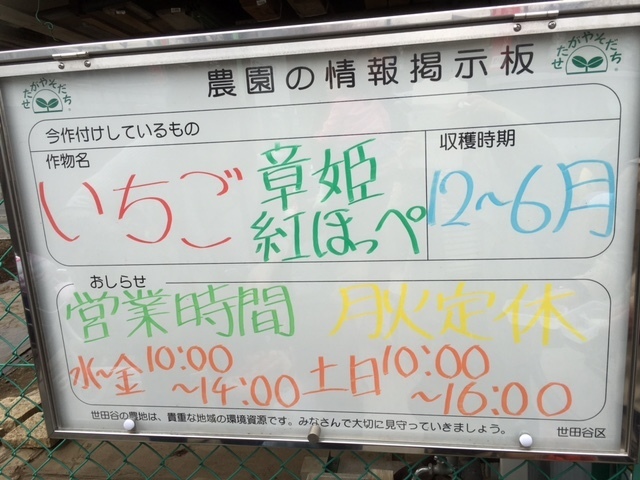 農園の情報掲示板
せたがやそだち
せたがやそだち
今作付けしているもの
作物名
いちご 章姫
紅ほっぺ
収穫時期
12~6月
おしらせ
営業時間 月火定休
水~金10:00
~14:00
土日10:00
~16:00
世田谷の農地は、貴重な地域の環境資源です。みなさんで大切に見守っていきましょう。
世田谷区